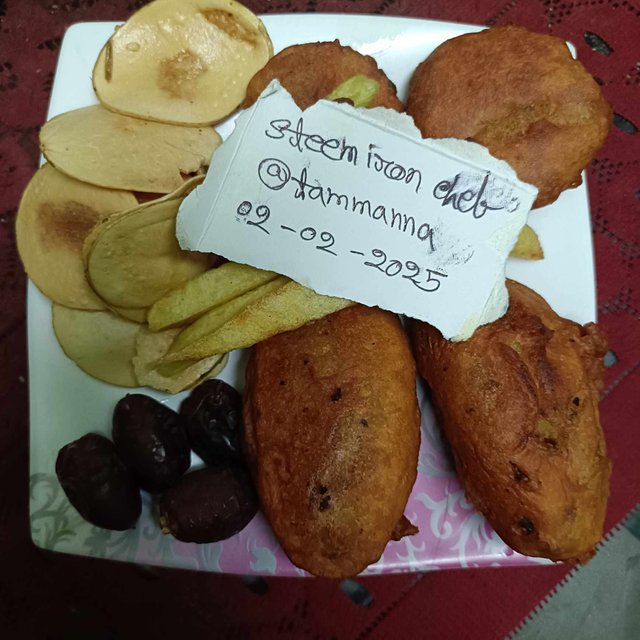 steem iron chef
@tammanna
02-02-2025